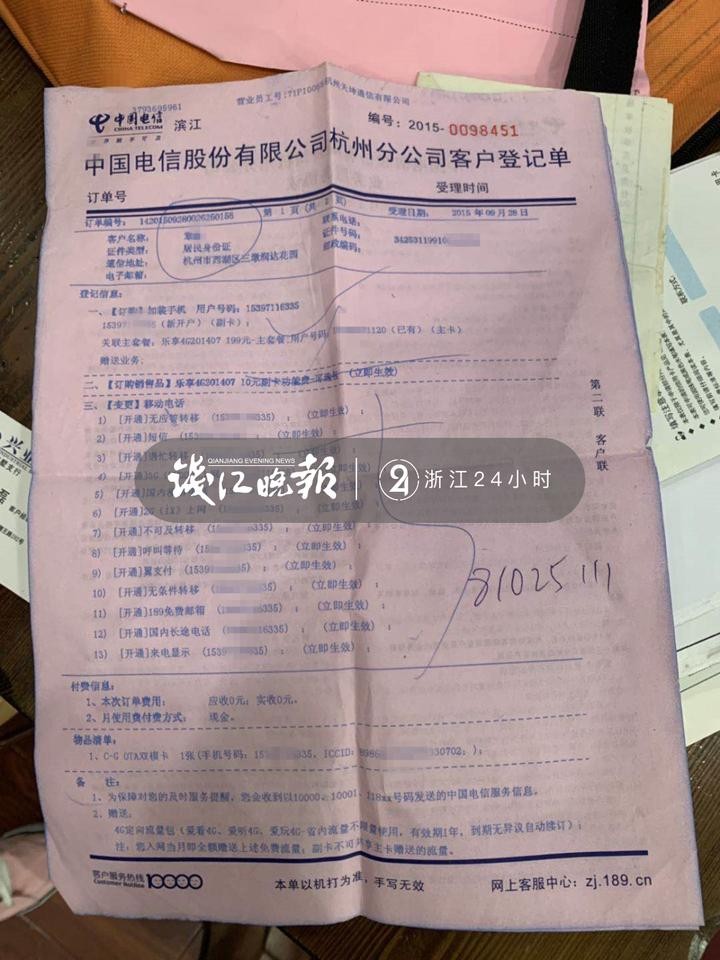 3793695961
营业员工号:71P10085杭州天坤通信有限公司
中国电信
CHINA TELECOM
滨江
编号: 2015-0098451
中国电信股份有限公司杭州分公司客户登记单
订单号
受理时间
第 1 页 (共 2 页)
订单编号: 14201509280026260156
受理日期: 2015 年 09 月 28 日
客户名称: 章
联系电话:
证件类型: 居民身份证
证件号码: 34253119910
通信地址: 杭州市西湖区三墩润达花园
邮政编码:
电子邮箱:
登记信息:
一、【订购】加装手机 用户号码: 15397116335
15397 (新开户)(副卡):
关联主套餐:乐享4G201407 199元-主套餐,用户号码: 1120 (已有) (主卡)
赠送业务:
二、【订购销售品】乐享4G201407 10元副卡功能费 (立即生效)
三、【变更】移动电话
1) [开通]无应答转移 (15 335) : (立即生效) :
2) [开通]短信 (15 335) : (立即生效) :
3) [开通]遇忙转移
4) [开通]
5) [开通]国内
6) [开通]2G (1X) 上网
7) [开通]不可及转移 (15 335) : (立即生效) :
8) [开通]呼叫等待 (15 335) : (立即生效) :
9) [开通]翼支付 (1539 335) : (立即生效) :
10) [开通]无条件转移 (15 335) : (立即生效) :
11) [开通]189免费邮箱 ( 6335) : (立即生效) :
12) [开通]国内长途电话 ( 16335) : (立即生效) :
13) [开通]来电显示 (1539 335) : (立即生效) :
钱江晚报
QIANJIANG EVENING NEWS
24 浙江24小时
81025111
第二联 客户联
付费信息:
1、本次订单费用: 应收0元; 实收0元。
2、月使用费付费方式: 现金。
物品清单:
1、C-G OTAXX模卡 1张(手机号码: 15 335, ICCID: 8986 930702; );
备 注:
1、为保障对您的及时服务提醒, 您会收到以10000、10001、118xx号码发送的中国电信服务信息。
2、赠送:
4G定向流量包(爱看4G、爱听4G、爱玩4G-省内流量不限量使用, 有效期1年, 到期无异议自动续订);
注: 您入网当月即全额赠送上述免费流量; 副卡不可共享主卡赠送的流量。
客户服务热线
Customer Hotline 10000
本单以机打为准, 手写无效
网上客服中心: zj.189.cn